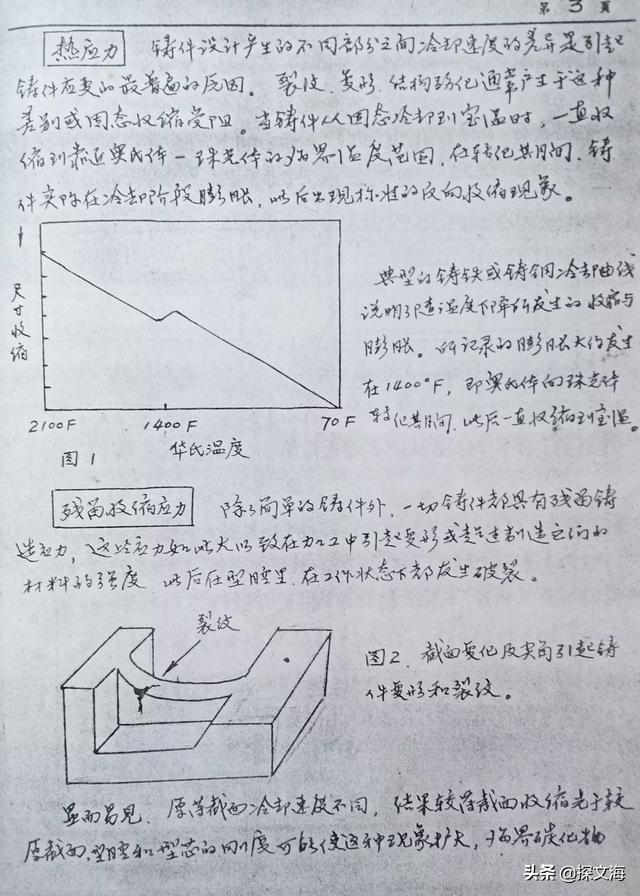 第 3 頁
热应力 铸件设计产生的不同部分之间冷却速度的差异是引起
铸件应变的最普遍的原因。裂纹、变形、结构弱化通常产生于这种
差别或固态收缩受阻。当铸件从固态冷却到室温时，一直收
缩到靠近奥氏体－珠光体的临界温度范围，在转化其间、铸
件实际在冷却阶段膨胀，此后出现的反向收缩现象。
尺寸收缩
2100F 1400F 70F
图1 华氏温度
典型的铸铁或铸钢冷却曲线
说明了随温度下降所发生的收缩与
膨胀。所记录的膨胀大约发生
在1400°F，即奥氏体向珠光体
转化其间，此后一直收缩到室温。
残留收缩应力 除了简单的铸件外，一切铸件都具有残留铸
造应力，这些应力如此大以致在加工中引起变形或超过制造它们的
材料的强度 此后在型腔里、在工作状态下都发生破裂。
裂纹
图2. 截面变化及尖角引起铸
件变形和裂纹。
显而易见、厚薄截面冷却速度不同，结果较薄截面收缩先于较
厚截面，型腔和型芯的刚度可能使这种现象扩大，临界碳化物
头条 @探文海